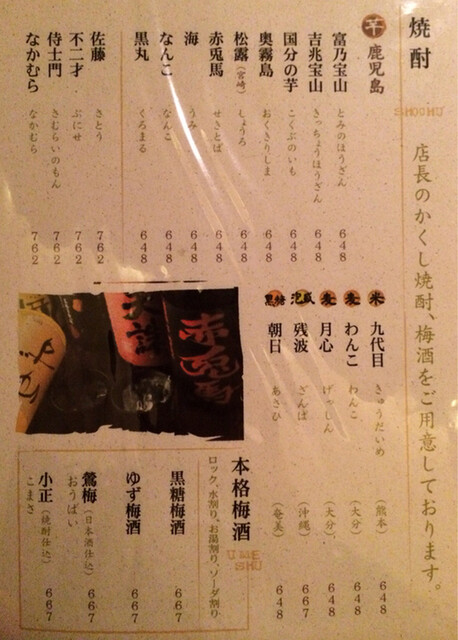 焼酎
SHOCHU
店長のかくし焼酎、梅酒をご用意しております。
芋 鹿児島
富乃宝山 とみのほうざん 648
吉兆宝山 きっちょうほうざん 648
国分の芋 こくぶのいも 648
奥霧島 おくきりしま 648
松露(宮崎) しょうろ 648
赤兎馬 せきとば 648
海 うみ 648
なんこ なんこ 648
黒丸 くろまる 648
佐藤 さとう 762
不二才 ぶにせ 762
侍士門 さむらいのもん 762
なかむら なかむら 762
米 九代目 きゅうだいめ (熊本) 648
麦 わんこ わんこ (大分) 648
麦 月心 げっしん (大分) 648
泡盛 残波 ざんぱ (沖縄) 667
黒糖 朝日 あさひ (奄美) 648
赤兎馬
本格梅酒
UMESHU
ロック、水割り、お湯割り、ソーダ割り
黒糖梅酒 667
ゆず梅酒 667
鶯梅(日本酒仕込) おうばい 667
小正(焼酎仕込) こまさ 667